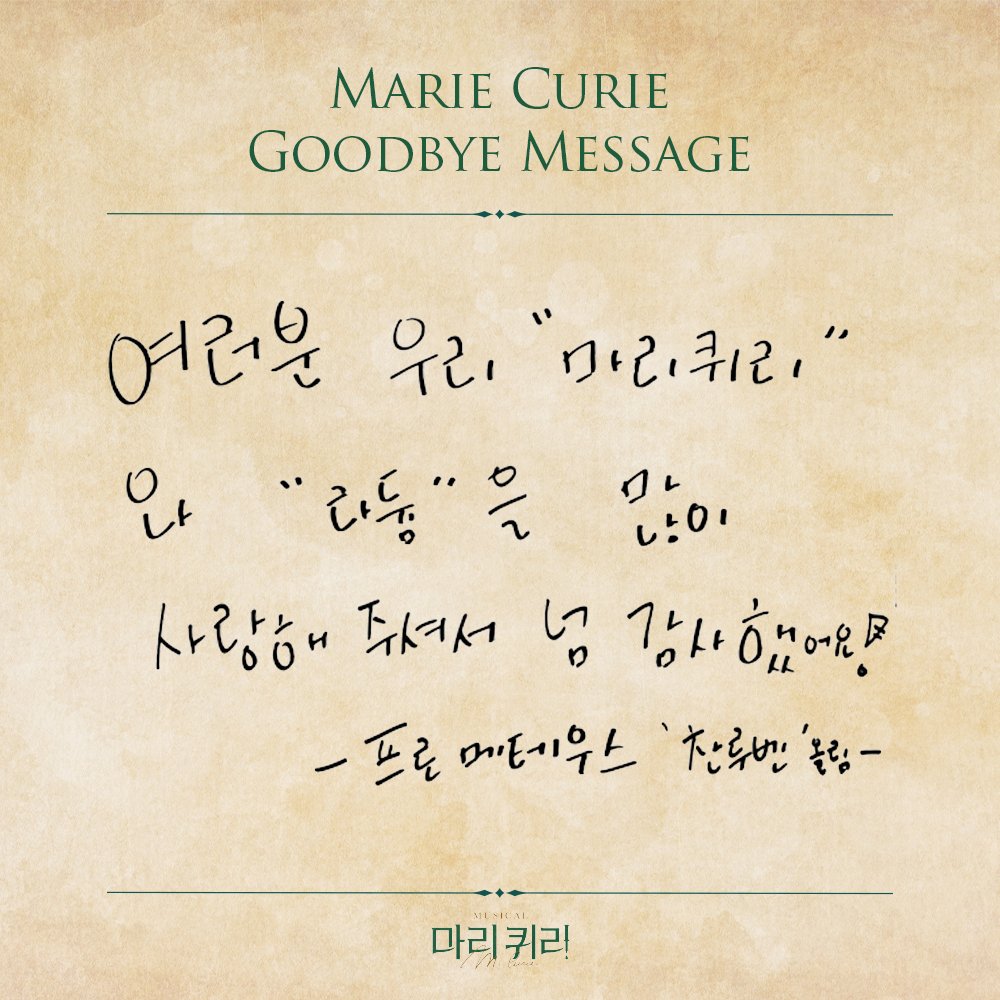 MARIE CURIE
GOODBYE MESSAGE
여러분 우리 "마리퀴리"
와 "라듐"을 많이
사랑해 주셔서 넘 감사했어요!
- 프로메테우스 '찬루벤' 올림 -
MUSICAL
마리 퀴리